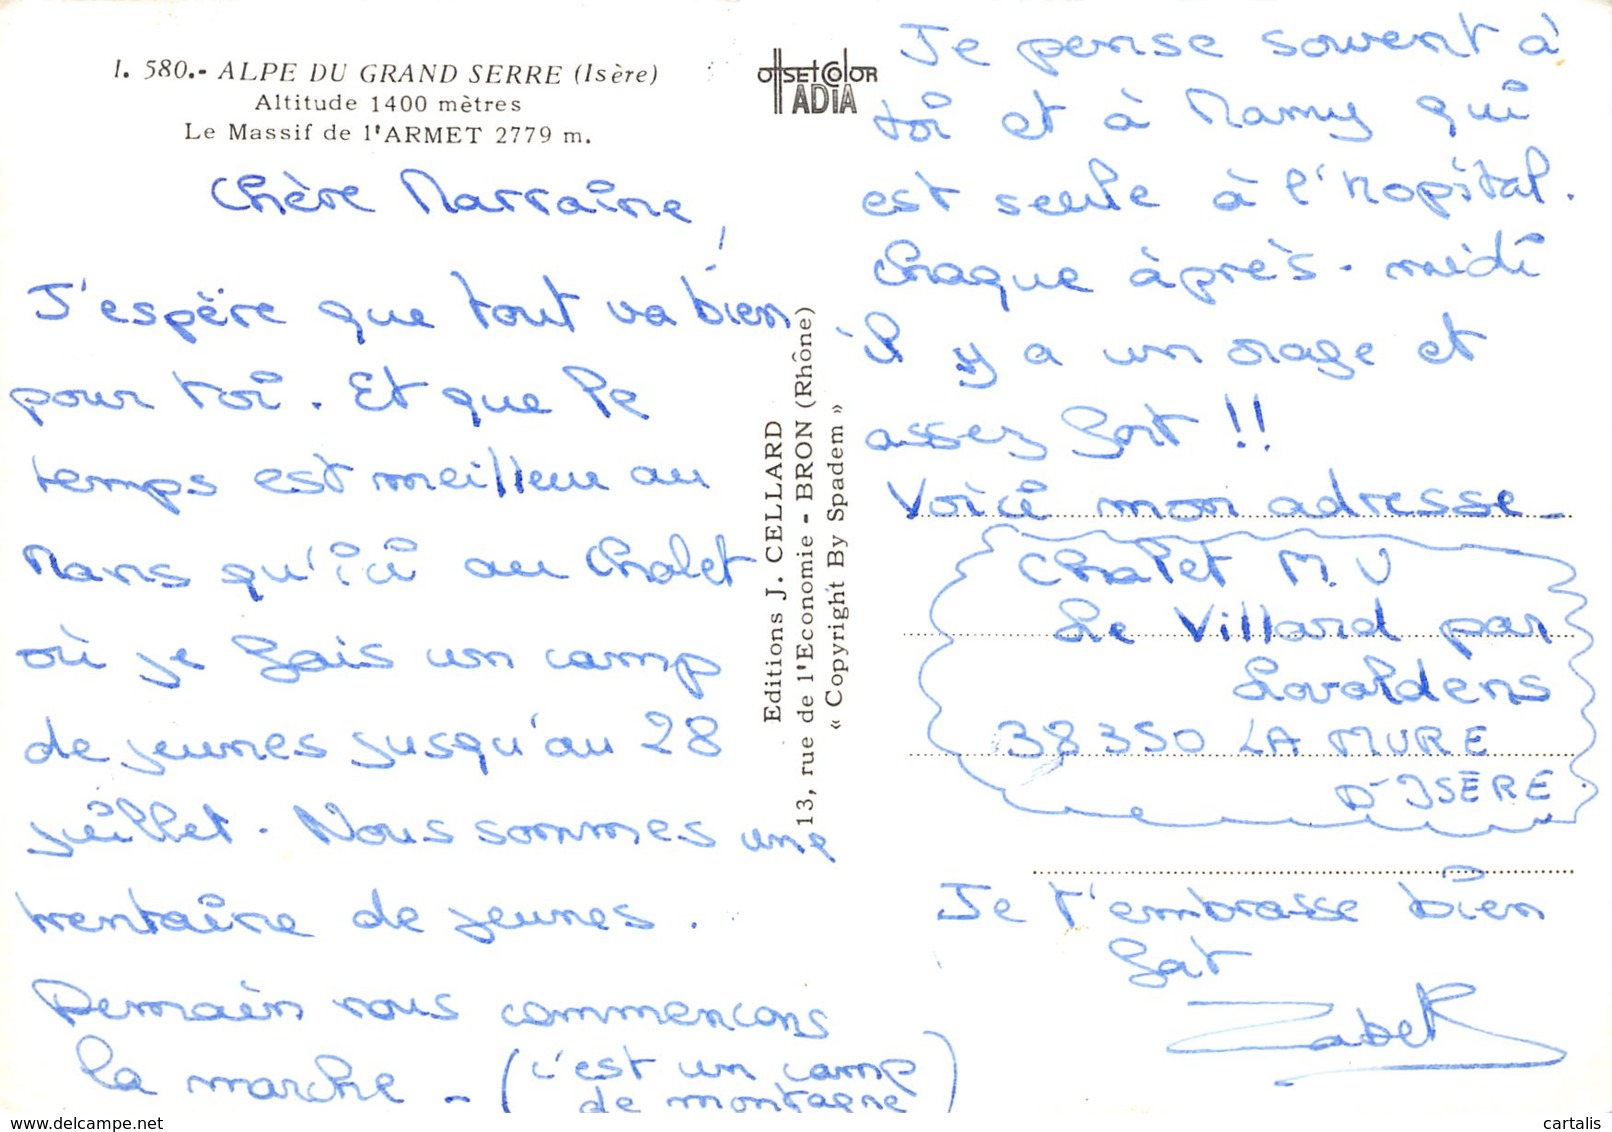 I. 580.- ALPE DU GRAND SERRE (Isère)
Altitude 1400 mètres
Le Massif de l'ARMET 2779 m.
OffSEt COlOR
ADIA
Chère Marraine,
J'espère que tout va bien
pour toi. Et que le
temps est meilleur au
Mans qu'ici au Chalet
où je fais un camp
de jeunes jusqu'au 28
juillet. Nous sommes une
trentaine de jeunes.
Demain nous commençons
la marche - (c'est un camp
de montagne)
Editions J. CELLARD
13, rue de l'Economie - BRON (Rhône)
« Copyright By Spadem »
Je pense souvent à
toi et à Mamy qui
est seule à l'hopital.
Chaque àprès-midi
il y a un orage et
assez fort !!
Voici mon adresse
Chalet M.V
Le Villard par
Lavaldens
38350 LA MURE
D'ISÈRE
Je t'embrasse bien
fort
Zabeth
www.delcampe.net
cartalis